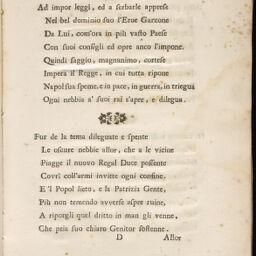 Ad impor leggi, ed a serbarle apprese
Nel bel dominio suo l'Eroe Garzone
Da Lui, com'ora in più vasto Paese
Con suoi consigli ed opre anco l'impone.
Quindi saggio, magnanimo, cortese
Impera il Regge, in cui tutta ripone
Napol sua speme, e in pace, in guerra, in triegua
Ogni nebbia a' suoi rai s'apre, e dilegua.
Fur de la tema dileguate e spente
Le oscure nebbie allor, che a le vicine
Piagge il nuovo Regal Duce possente
Covrì coll'armi invitte ogni confine.
E 'l Popol lieto, e la Patrizia Gente,
Più non temendo avverse aspre ruine,
A riporgli quel dritto in man gli venne,
Che pria suo chiaro Genitor sostenne.
D Allor